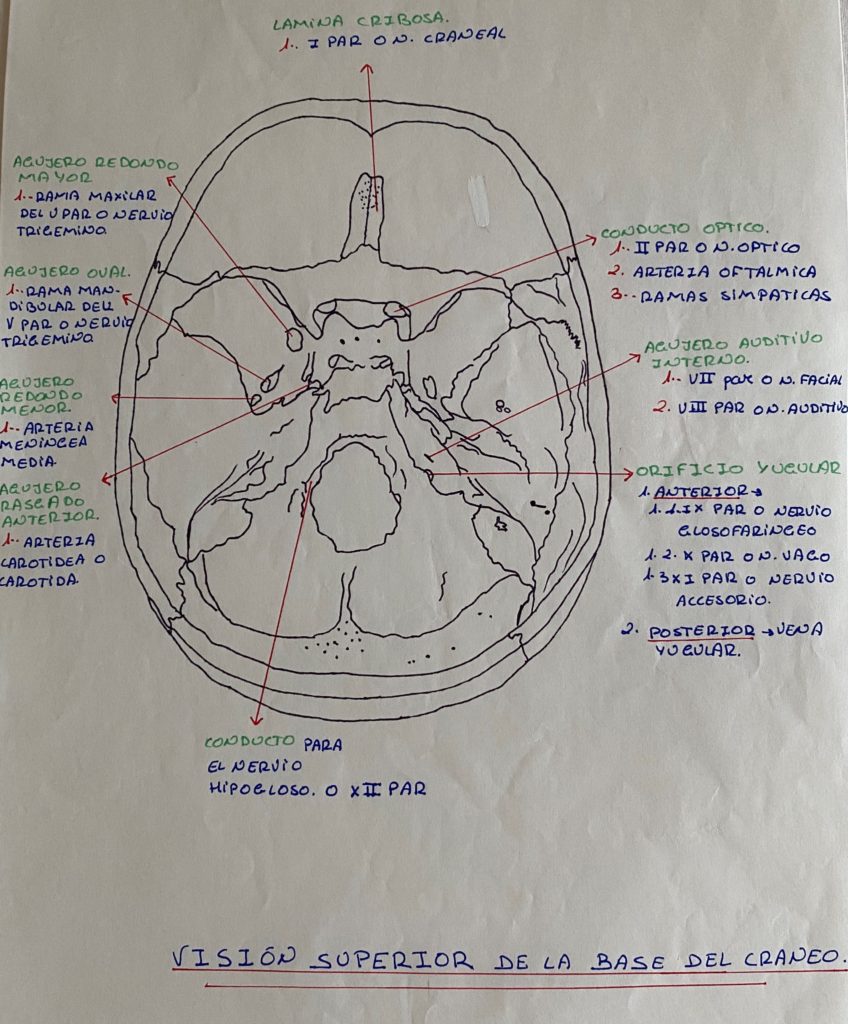 LAMINA CRIBOSA.
1.. I PAR O N. CRANEAL
AGUJERO REDONDO
MAYOR
1.. RAMA MAXILAR
DEL V PAR O NERVIO
TRIGEMINO.
AGUJERO OVAL.
1.. RAMA MAN-
DIBULAR DEL
V PAR O NERVIO
TRIGEMINO
AGUJERO
REDONDO
MENOR.
1.. ARTERIA
MENINGEA
MEDIA.
AGUJERO
RASGADO
ANTERIOR.
1.. ARTERIA
CAROTIDEA O
CAROTIDA.
CONDUCTO OPTICO.
1.. II PAR O N. OPTICO
2. ARTERIA OFTALMICA
3.. RAMAS SIMPATICAS
AGUJERO AUDITIVO
INTERNO.
1.. VII par O N. FACIAL
2. VIII PAR O N. AUDITIVO
ORIFICIO YUGULAR
1. ANTERIOR →
1.1. IX PAR O NERVIO
GLOSOFARINGEO
1.2. X PAR O N. VAGO
1.3 XI PAR O NERVIO
ACCESORIO.
2. POSTERIOR → VENA
YUGULAR.
CONDUCTO PARA
EL NERVIO
HIPOGLOSO. O XII PAR
VISIÓN SUPERIOR DE LA BASE DEL CRANEO.